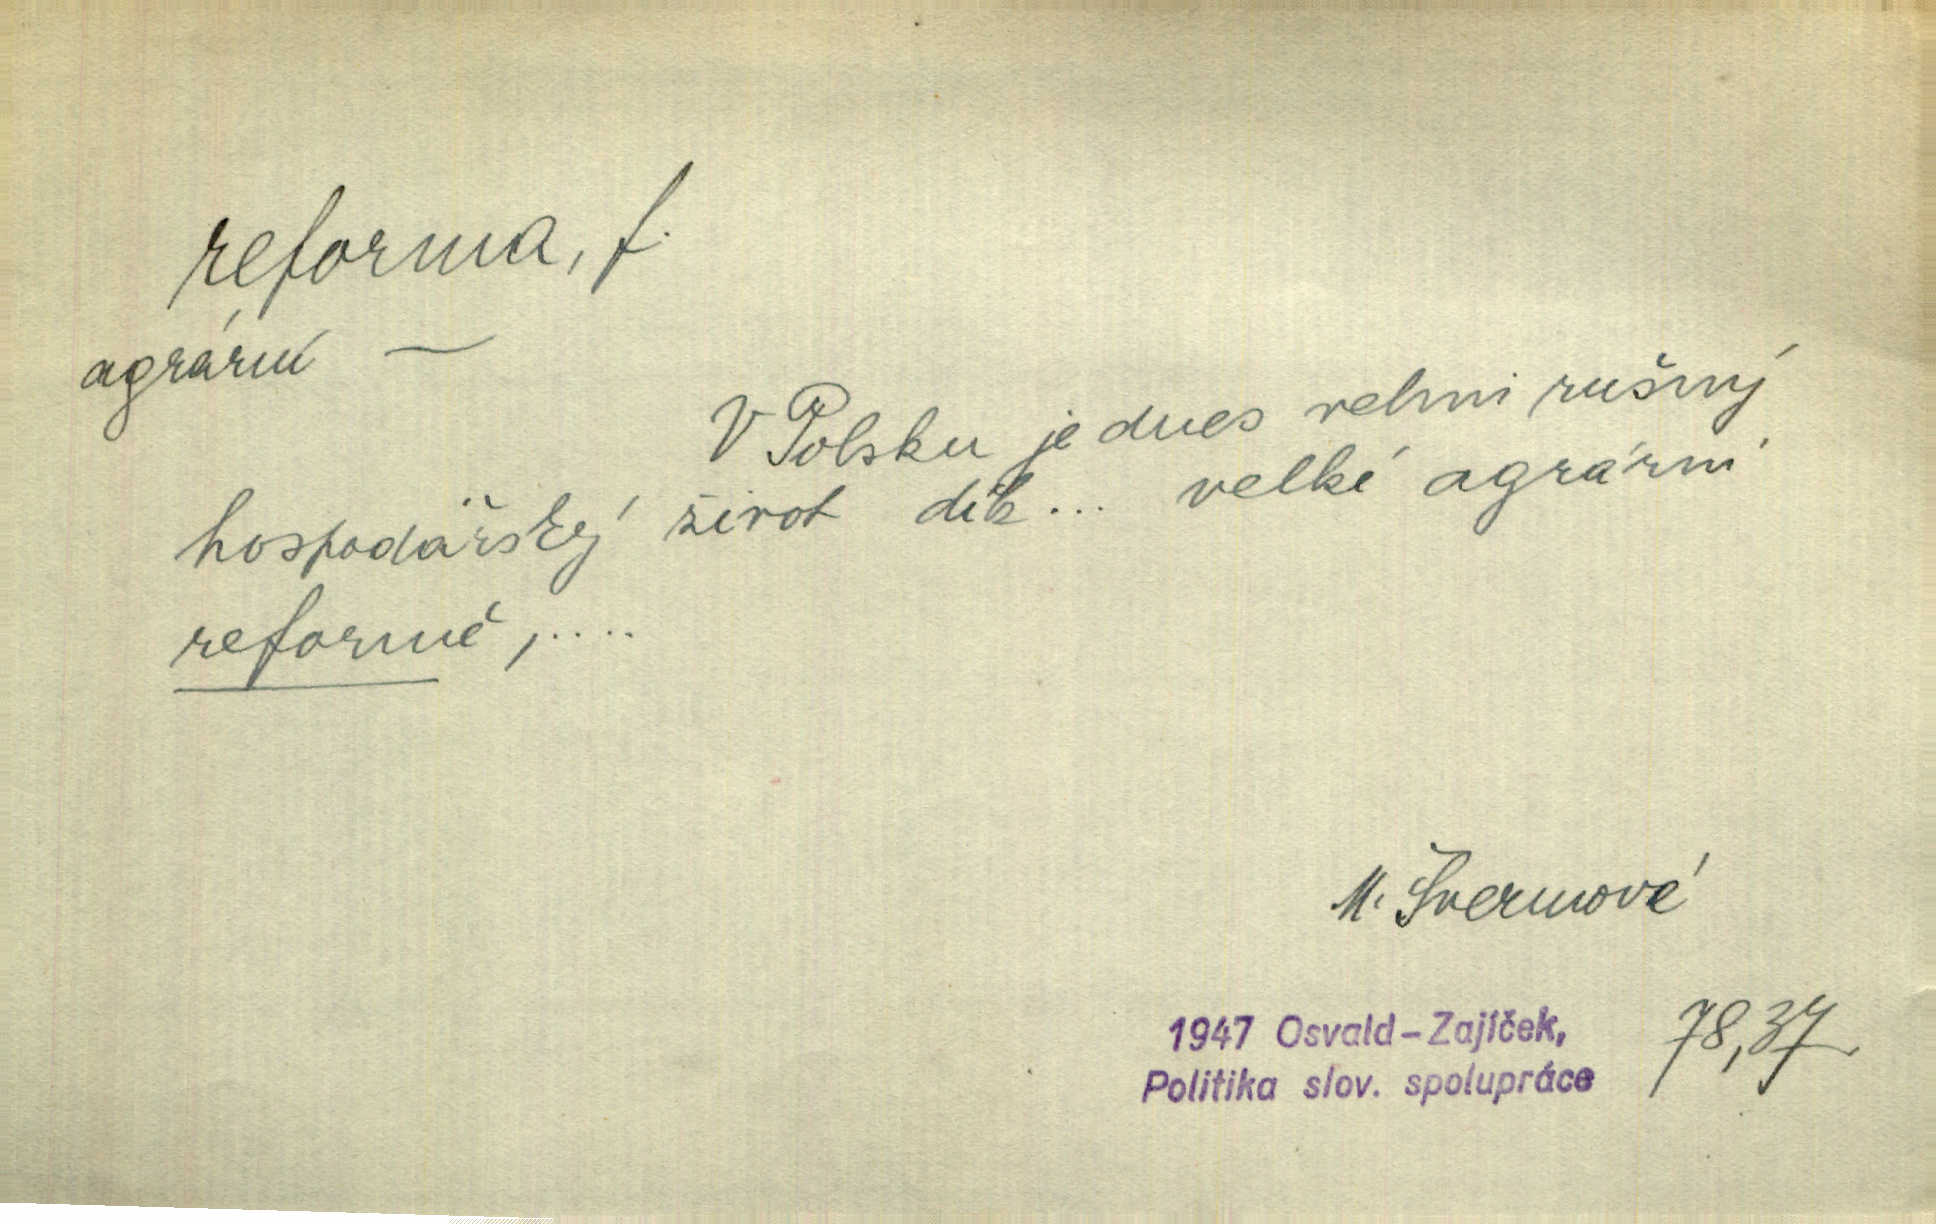 reforma, f.
agrární —
V Polsku je dnes velmi rušný
hospodářský život dík... velké agrární
reformě,....
M. Švermové
1947 Osvald-Zajíček, 78,37
Politika slov. spolupráce